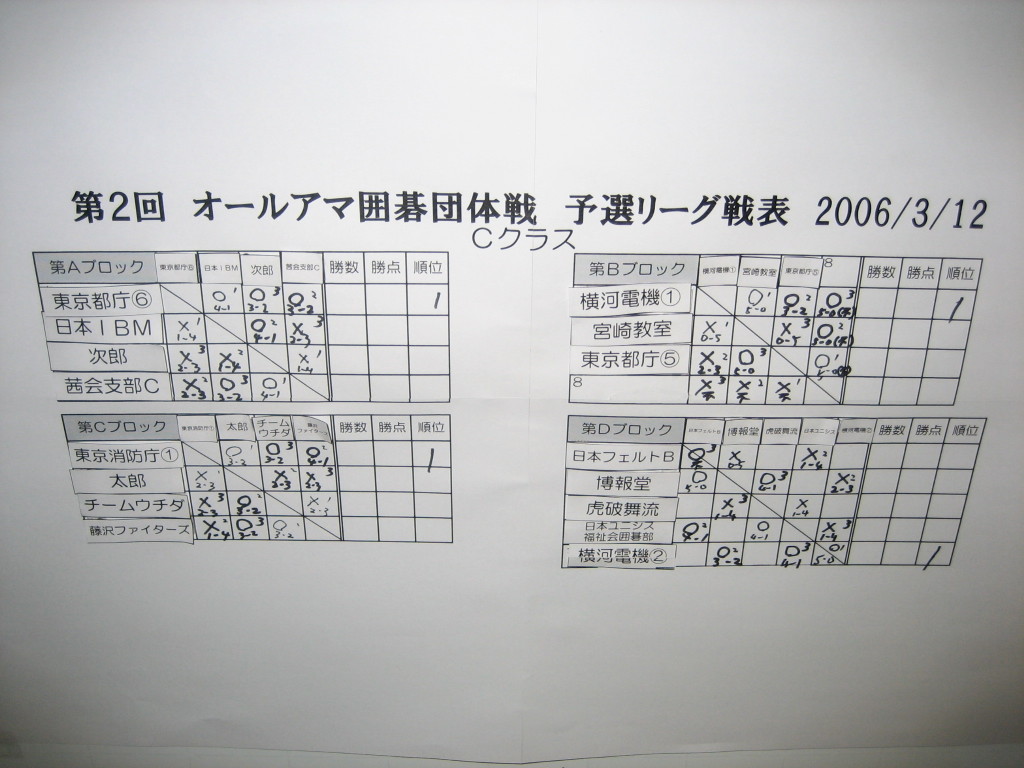 第2回 オールアマ囲碁団体戦 予選リーグ戦表 2006/3/12
Cクラス
第Aブロック 東京都庁⑥ 日本IBM 次郎 茜会支部C 勝数 勝点 順位
東京都庁⑥ ○1 4-1 ○3 3-2 ○2 3-2 1
日本IBM ×1 1-4 ○2 4-1 ×3 2-3
次郎 ×3 2-3 ×2 1-4 ×1 1-4
茜会支部C ×2 2-3 ○3 3-2 ○1 4-1
第Bブロック 横河電機① 宮崎教室 東京都庁⑤ 8 勝数 勝点 順位
横河電機① ○1 5-0 ○2 3-2 ○3 5-0 1
宮崎教室 ×1 0-5 ×3 0-5 ○2 5-0
東京都庁⑤ ×2 2-3 ○3 5-0 ○1 5-0
8 ×3 ×2 ×1
第Cブロック 東京消防庁① 太郎 チームウチダ 藤沢ファイターズ 勝数 勝点 順位
東京消防庁① ○1 3-2 ○3 3-2 ○2 4-1 1
太郎 ×1 2-3 ×2 2-3 ×3 2-3
チームウチダ ×3 2-3 ○2 3-2 ×1 2-3
藤沢ファイターズ ×2 1-4 ○3 3-2 ○1 3-2
第Dブロック 日本フェルトB 博報堂 虎破舞流 日本ユニシス 横河電機② 勝数 勝点 順位
日本フェルトB ○3 × 0-5 ×2 1-4
博報堂 ○ 5-0 ○3 4-1 ×2 2-3
虎破舞流 ×3 1-4 × 1-4
日本ユニシス
福祉会囲碁部 ○2 4-1 ○ 4-1 ×3 1-4
横河電機② ○2 3-2 ○3 4-1 ○1 5-0 1